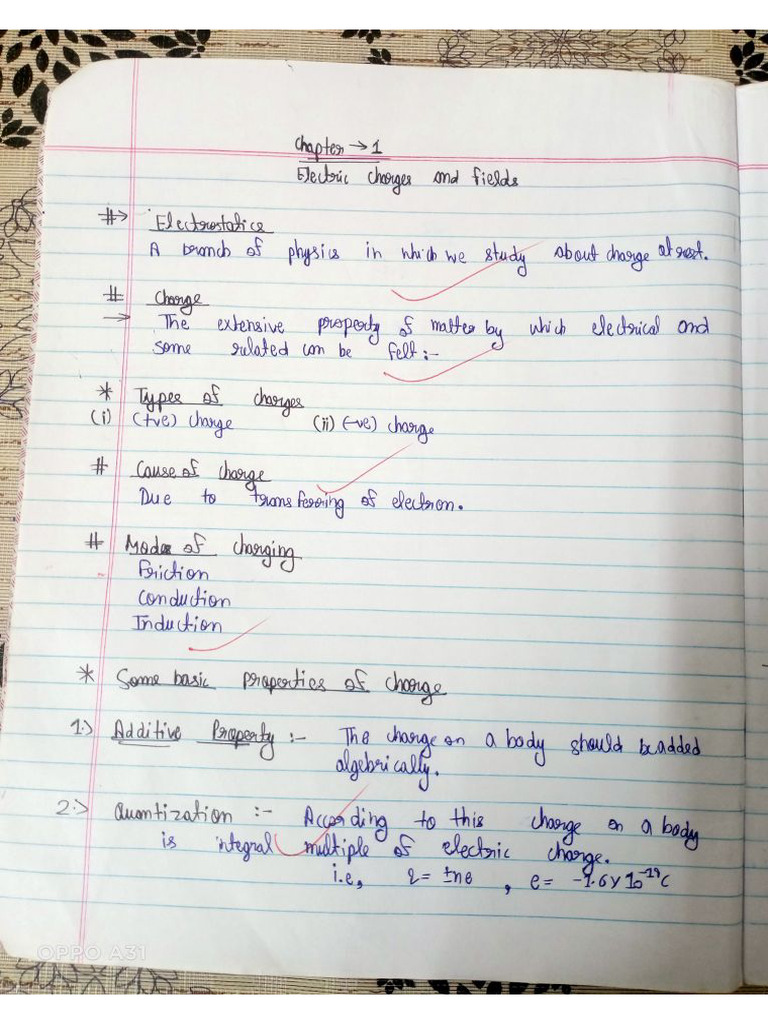 Chapter → 1
Electric charges and fields
#→ Electrostatics
A branch of physics in which we study about charge at rest.
# Charge
→ The extensive property of matter by which electrical and
some related can be felt :-
* Types of charges
(i) (+ve) charge (ii) (-ve) charge
# Cause of charge
Due to transferring of electron.
# Modes of charging
Friction
Conduction
Induction
* Some basic properties of charge
1.> Additive Property :- The charge on a body should be added
algebrically.
2.> Quantization :- According to this charge on a body
is integral multiple of electric charge.
i.e, q = ±ne , e = -1.6 × 10⁻¹⁹ C
OPPO A31